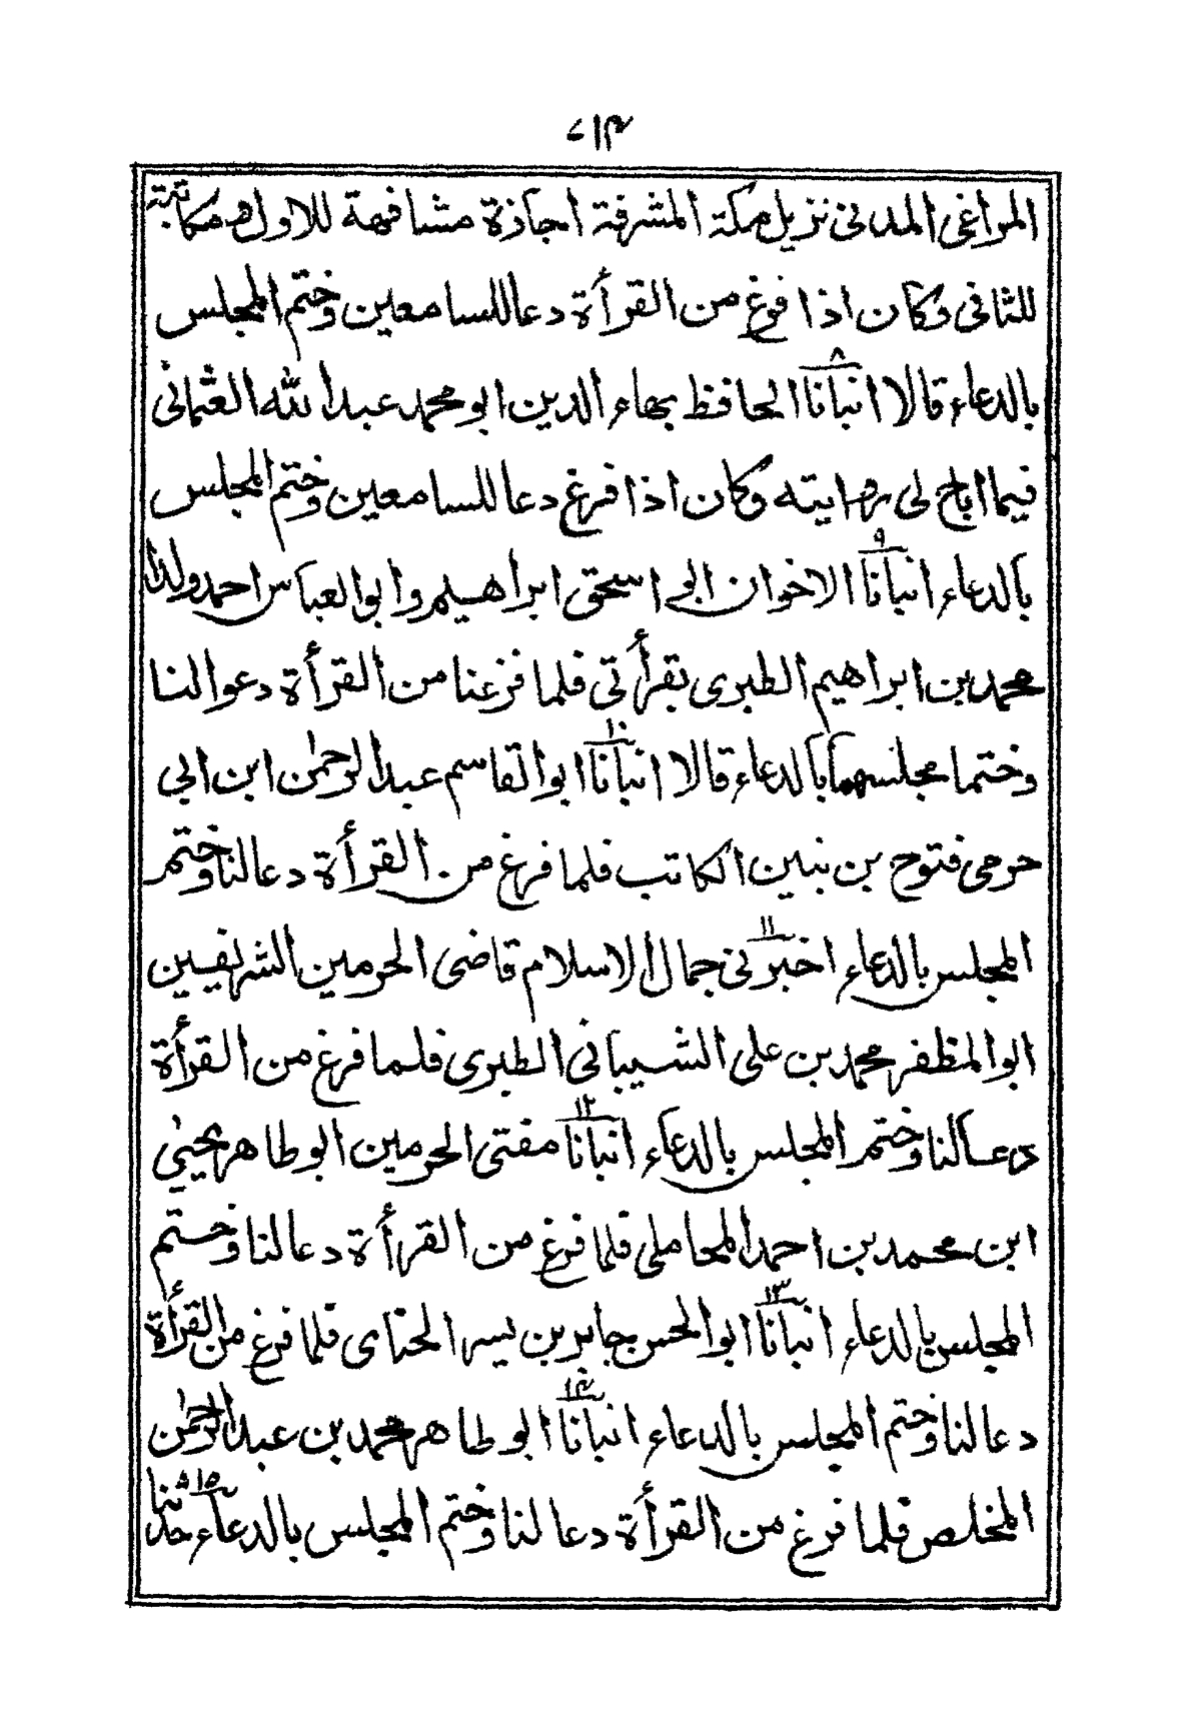 ۱۴
المراغى المدنى نزيل مكة المشرفة اجازة مشافهة للاول ومكاتبة
للثانى وكان اذا فرغ من القرأة دعا للسامعين وختم المجلس
بالدعاء قالا انبانا۸ الحافظ بهاء الدين ابو محمد عبد الله العثمانى
فيما اباح لى روايته وكان اذا فرغ دعا للسامعين وختم المجلس
بالدعاء انبانا۹ الاخوان ابى اسحق ابراهيم وابو العباس احمد ولدا
محمد بن ابراهيم الطبرى بقرأتى فلما فرغنا من القرأة دعوا لنا
وختما مجلسهما بالدعاء قالا انبانا۱۰ ابو القاسم عبد الرحمٰن ابن ابى
حرمى فتوح بن بنين الكاتب فلما فرغ من القرأة دعا لنا وختم
المجلس بالدعاء اخبرنى۱۱ جمال الاسلام قاضى الحرمين الشريفين
ابو المظفر محمد بن على الشيبانى الطبرى فلما فرغ من القرأة
دعا لنا وختم المجلس بالدعاء انبانا۱۲ مفتى الحرمين ابو طاهر يحيىٰ
ابن محمد بن احمد المحاملى فلما فرغ من القرأة دعا لنا وختم
المجلس بالدعاء انبانا۱۳ ابو الحسن جابر بن يسر الحنائى فلما فرغ من القرأة
دعا لنا وختم المجلس بالدعاء انبانا۱۴ ابو طاهر محمد بن عبد الرحمٰن
المخلص فلما فرغ من القرأة دعا لنا وختم المجلس بالدعاء حدثنا۱۵